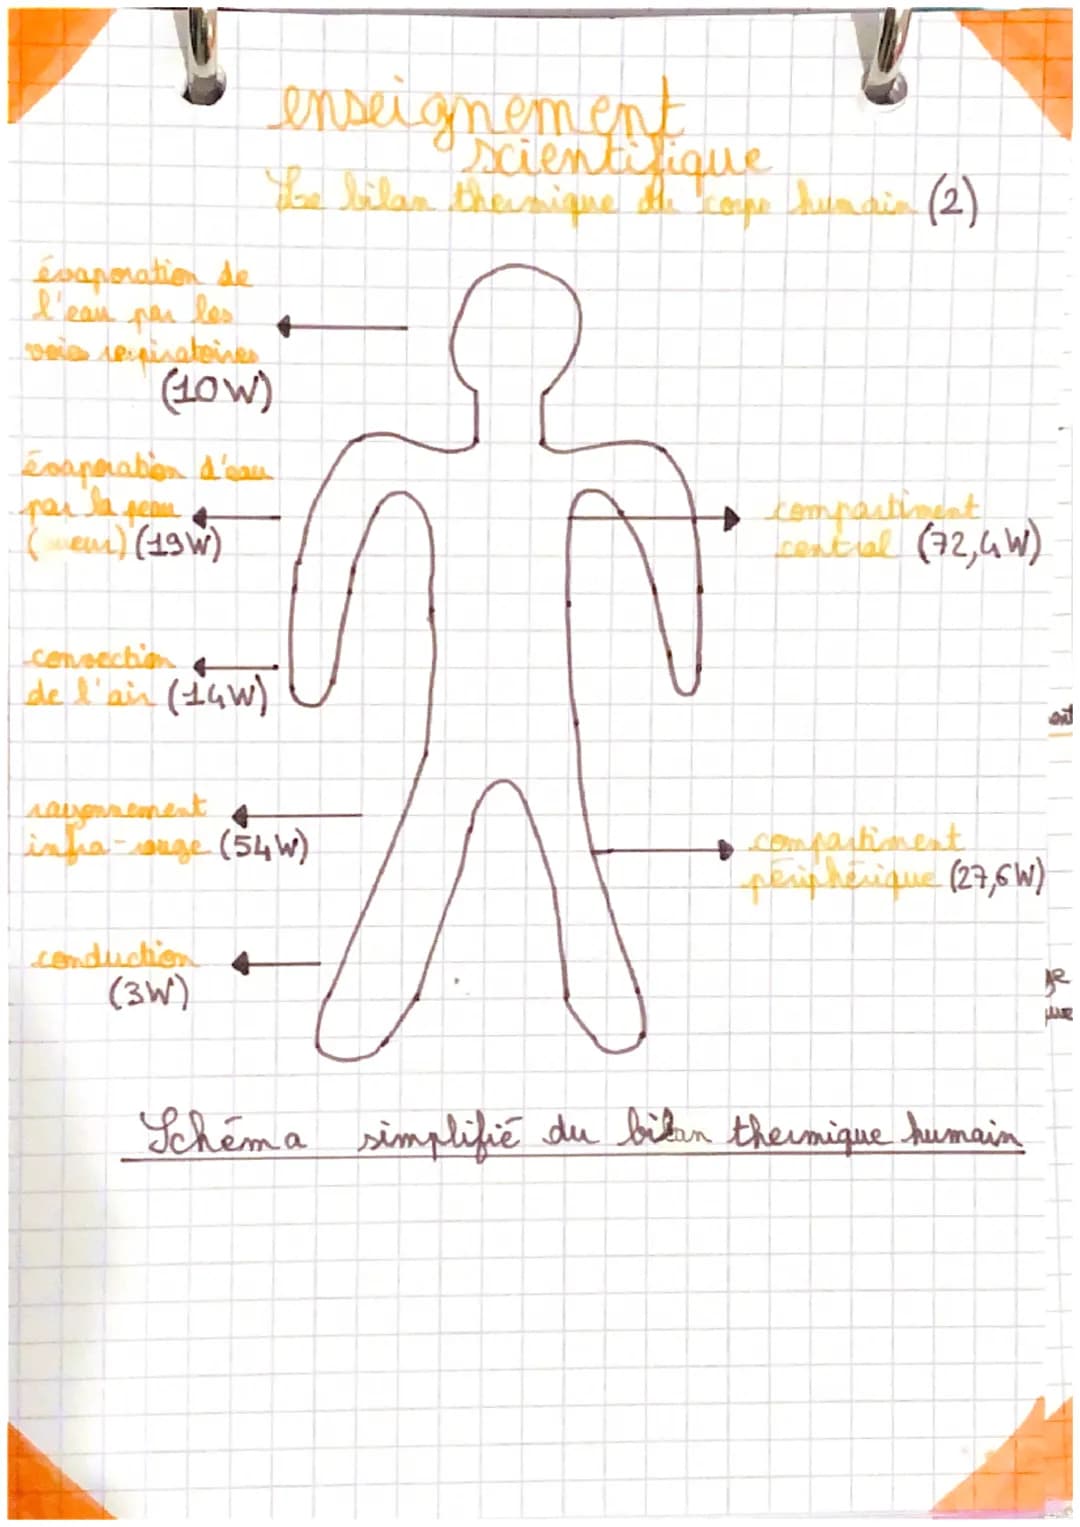 enseignement
scientifique
Le bilan thermique du corps humain (2)
évaporation de
l'eau par les
voies respiratoires
(10W)
évaporation d'eau
par la peau
(sueur) (19W)
convection
de l'air (14W)
rayonnement
infra-rouge (54W)
conduction
(3W)
compartiment
central (72,4W)
compartiment
périphérique (27,6W)
Schéma simplifié du bilan thermique humain